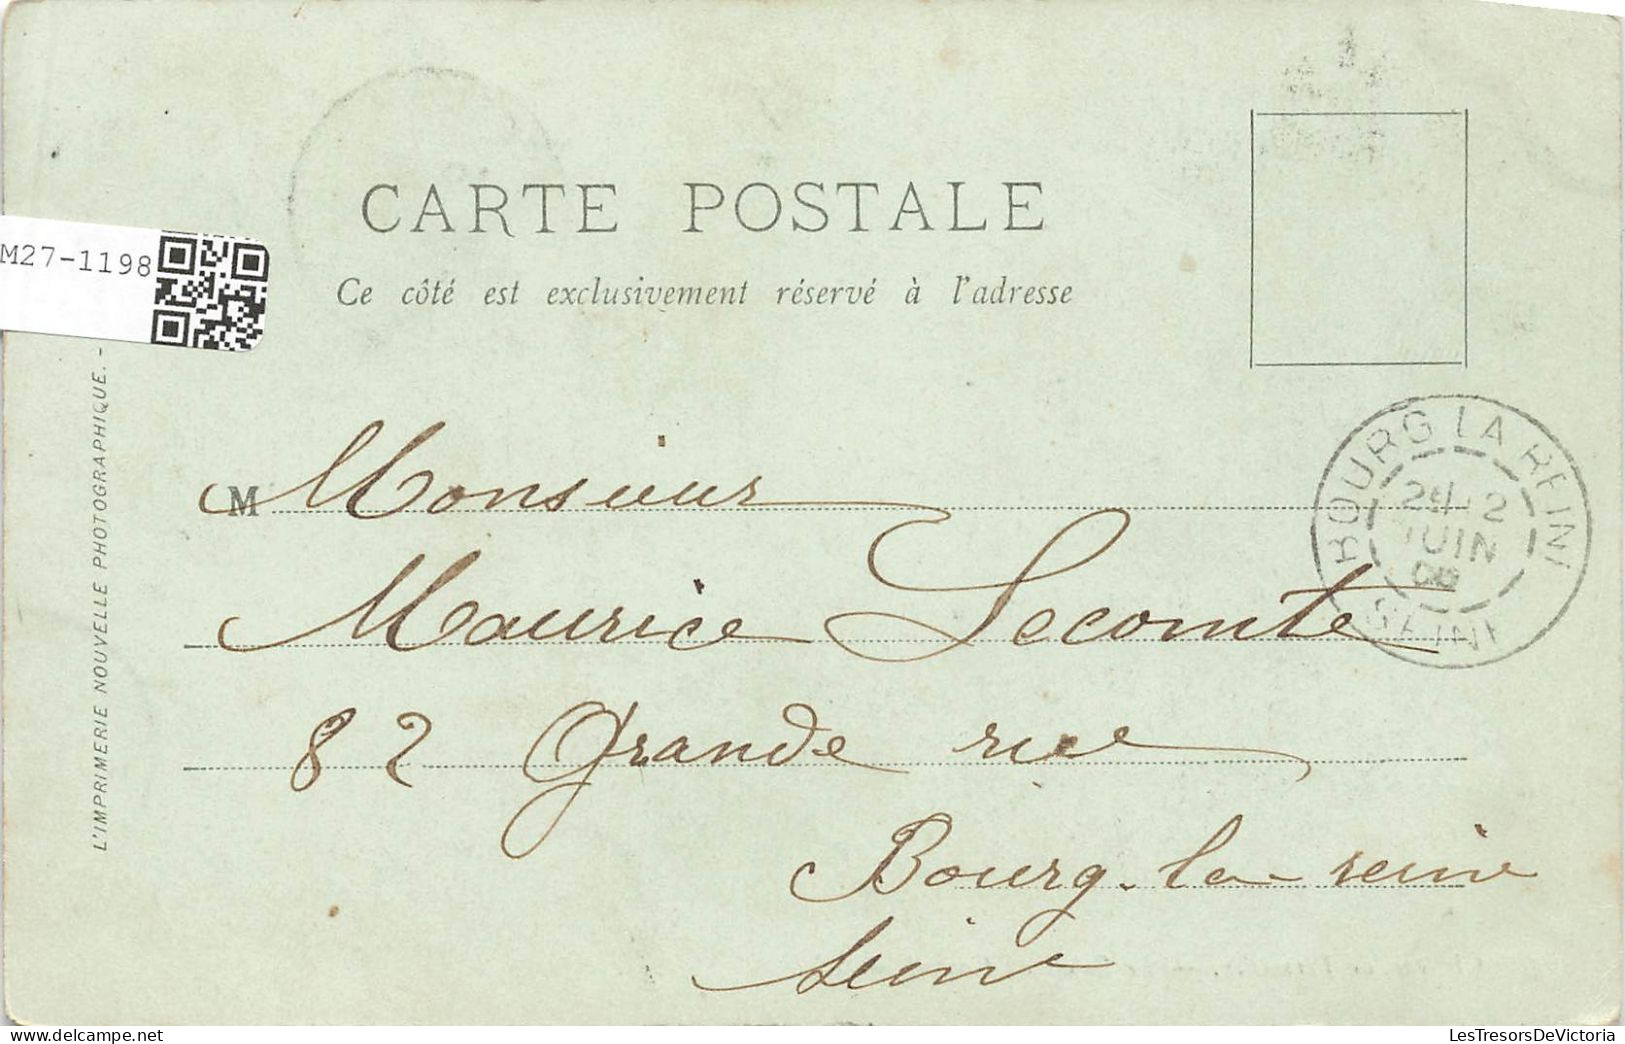 CARTE POSTALE
Ce côté est exclusivement réservé à l'adresse
M27-1198
L'IMPRIMERIE NOUVELLE PHOTOGRAPHIQUE. -
M Monsieur
Maurice Lecomte
82 Grande rue
Bourg-la-reine
Seine
BOURG LA REINE
2
JUIN
SEINE
LesTresorsDeVictoria